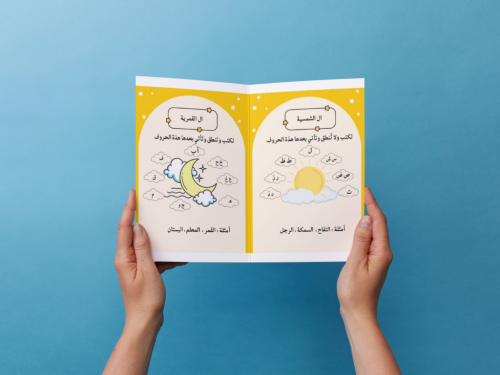 ال الشمسية
تكتب ولا تُنطق وتأتي بعدها هذة الحروف
ل
ط ظ
س ش
د ذ
ص ض
ت
أمثلة : التفاح ، السمكة ، الرجل
ال القمرية
تكتب وتنطق وتأتي بعدها هذة الحروف
أ ب
ف
ق
ع غ
م
هـ
أمثلة : القمر ، المعلم ، البستان